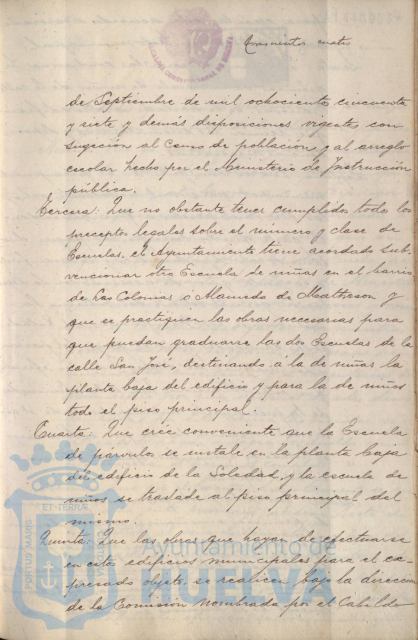 Doscientos cuatro
de Septiembre de mil ochocientos cincuenta
y siete y demás disposiciones vigentes con
sugeción al Censo de población y al arreglo
escolar hecho por el Ministerio de Instrucción
pública.
Tercera: Que no obstante tener cumplidos todo los
preceptos legales sobre el número y clase de
Escuelas, el Ayuntamiento tiene acordado sub-
vencionar otra Escuela de niñas en el barrio
de las Colonias o Alameda de Matheson y
que se practiquen las obras necesarias para
que puedan graduarse las dos Escuelas de la
calle San José, destinando á la de niñas la
planta baja del edificio y para la de niños
todo el piso principal.
Cuarta: Que crée conveniente que la Escuela
de párvulos se instale en la planta baja
del edificio de la Soledad, y la escuela de
niños se traslade al piso principal del
mismo.
Quinta: Que las obras que hayan de efectuarse
en estos edificios municipales para el ex-
presado objeto, se realicen bajo la dirección
de la Comisión nombrada por el Cabildo
Ayuntamiento de
HUELVA
PORTUS MARIS
ET TERRÆ